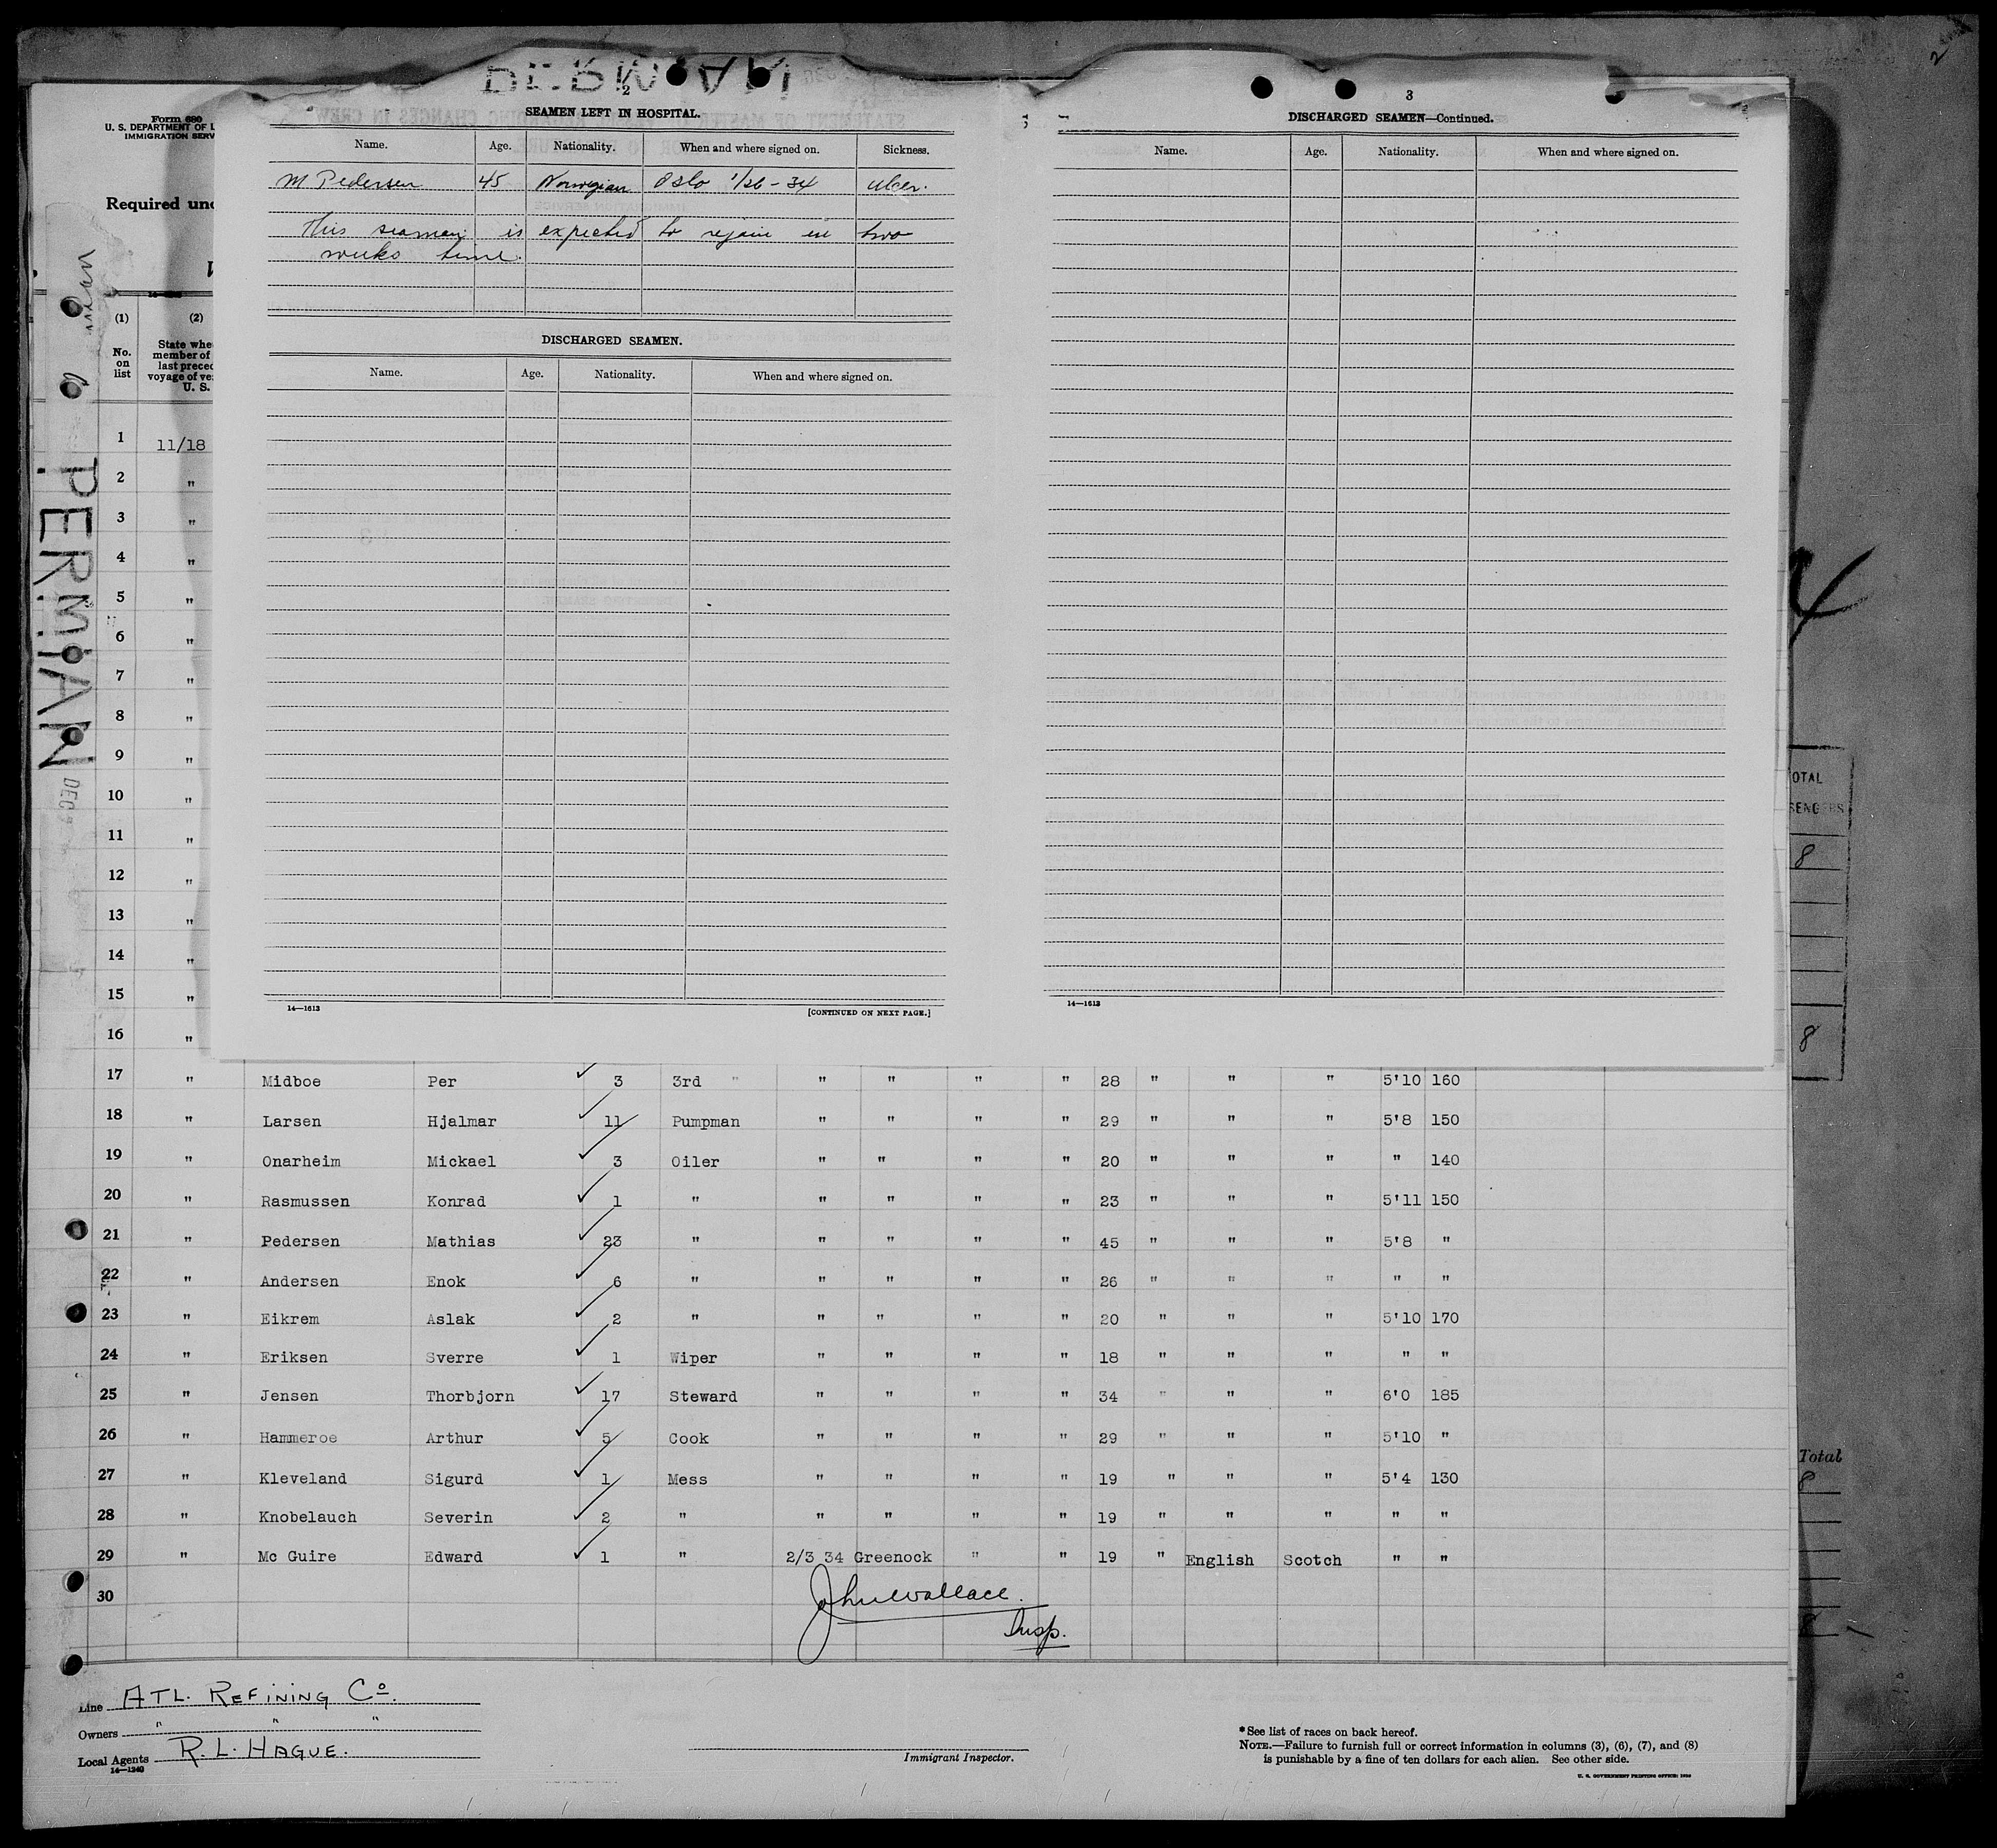 PERMIAN
2
SEAMEN LEFT IN HOSPITAL.
Name. Age. Nationality. When and where signed on. Sickness.
M Pedersen 45 Norwegian Oslo 1/26-34 Ulcer.
This seaman is expected to rejoin in two
weeks time.
DISCHARGED SEAMEN.
Name. Age. Nationality. When and where signed on.
14—1613
[CONTINUED ON NEXT PAGE.]
3
DISCHARGED SEAMEN—Continued.
Name. Age. Nationality. When and where signed on.
14—1613
Form 680
U. S. DEPARTMENT OF L
IMMIGRATION SERV
Required und
(1) (2)
No. on list
State whe
member of
last preced
voyage of ve
U. S.
PERMIAN
DEC
1 11/18
2 "
3 "
4 "
5 "
6 "
7 "
8 "
9 "
10 "
11 "
12 "
13 "
14 "
15 "
16 "
17 " Midboe Per 3 3rd " " " " " 28 " " " 5'10 160
18 " Larsen Hjalmar 11 Pumpman " " " " 29 " " " 5'8 150
19 " Onarheim Mickael 3 Oiler " " " " 20 " " " " 140
20 " Rasmussen Konrad 1 " " " " " 23 " " " 5'11 150
21 " Pedersen Mathias 23 " " " " " 45 " " " 5'8 "
22 " Andersen Enok 6 " " " " " 26 " " " " "
23 " Eikrem Aslak 2 " " " " " 20 " " " 5'10 170
24 " Eriksen Sverre 1 Wiper " " " " 18 " " " " "
25 " Jensen Thorbjorn 17 Steward " " " " 34 " " " 6'0 185
26 " Hammeroe Arthur 5 Cook " " " " 29 " " " 5'10 "
27 " Kleveland Sigurd 1 Mess " " " " 19 " " " 5'4 130
28 " Knobelauch Severin 2 " " " " " 19 " " " " "
29 " Mc Guire Edward 1 " 2/3 34 Greenock " " 19 " English Scotch " "
30
John Wallace.
Insp.
Line ATL. REFINING Co.
Owners " " "
Local Agents R. L. HAGUE.
14—1240
Immigrant Inspector.
*See list of races on back hereof.
NOTE.—Failure to furnish full or correct information in columns (3), (6), (7), and (8)
is punishable by a fine of ten dollars for each alien. See other side.
OTAL
SENGERS
8
8
Total
8
8
2
4